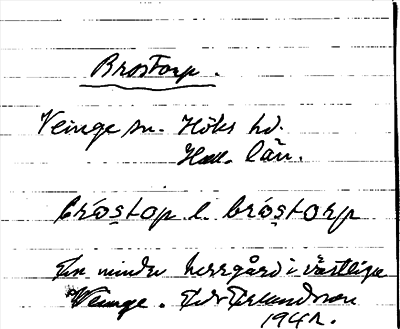 Brostorp.
Veinge sn. Höks hd.
Hall. län.
bróstop l. bróstorp
En mindre herrgård i västliga
Veinge. Edv Erlandsson
1941.